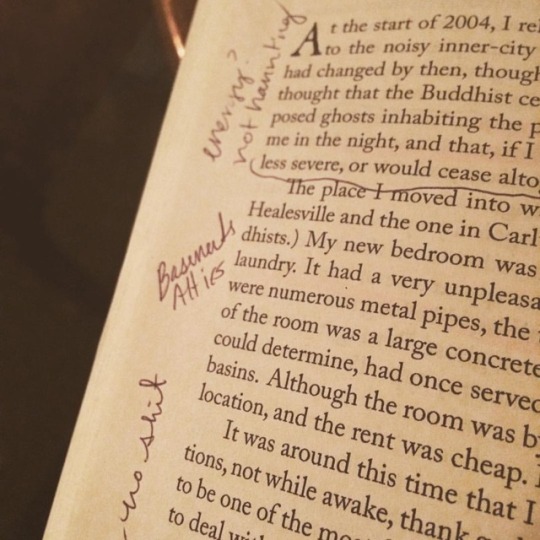 At the start of 2004, I
to the noisy inner-city
had changed by then,
thought that the Buddhist
posed ghosts inhabiting the
me in the night, and that, if I
less severe, or would cease
The place I moved into
Healesville and the one in
dhists.) My new bedroom was
laundry. It had a very
were numerous metal pipes, the
of the room was a large concrete
could determine, had once served
basins. Although the room was
location, and the rent was cheap.
It was around this time that I
tions, not while awake, thank
to be one of the
to deal
energy?
not haunting
Basements
Attics
no shit